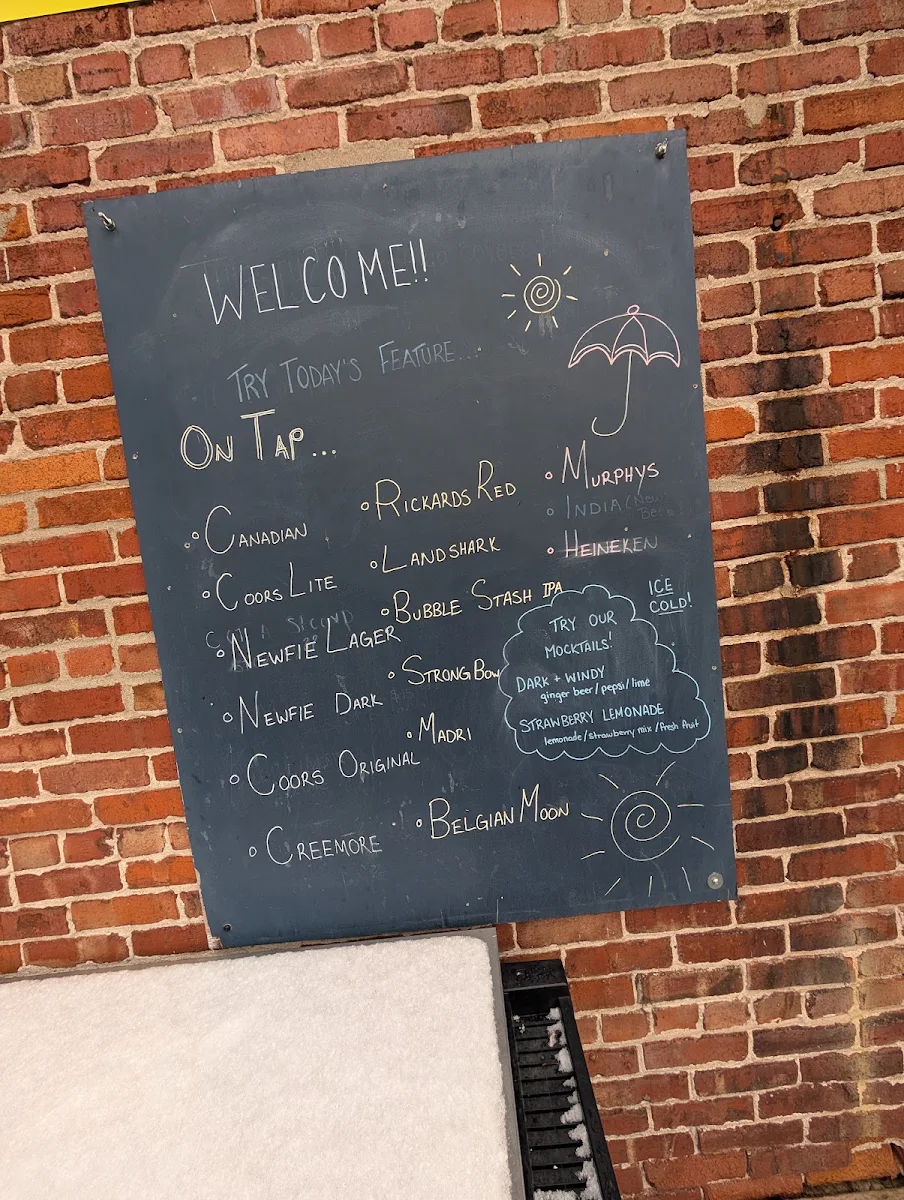 WELCOME!!
TRY TODAY'S FEATURE...
ON TAP...
◦ CANADIAN
◦ COORS LITE
◦ NEWFIE LAGER
◦ NEWFIE DARK
◦ COORS ORIGINAL
◦ CREEMORE
◦ RICKARDS RED
◦ LANDSHARK
◦ BUBBLE STASH IPA
◦ STRONGBOW
◦ MADRI
◦ BELGIAN MOON
◦ MURPHYS
◦ INDIA
◦ HEINEKEN
ICE
COLD!
TRY OUR
MOCKTAILS!
DARK + WINDY
ginger beer/pepsi/lime
STRAWBERRY LEMONADE
lemonade/strawberry mix/fresh fruit